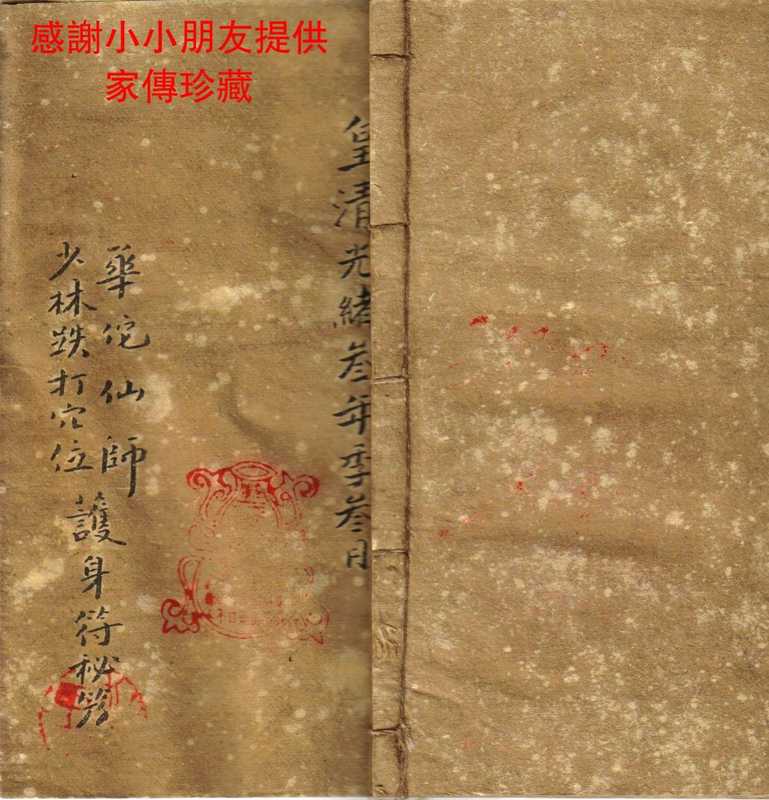 感謝小小朋友提供
家傳珍藏
皇清光緒叁年季叁月
華佗仙師
少林跌打穴位
護身符秘笈